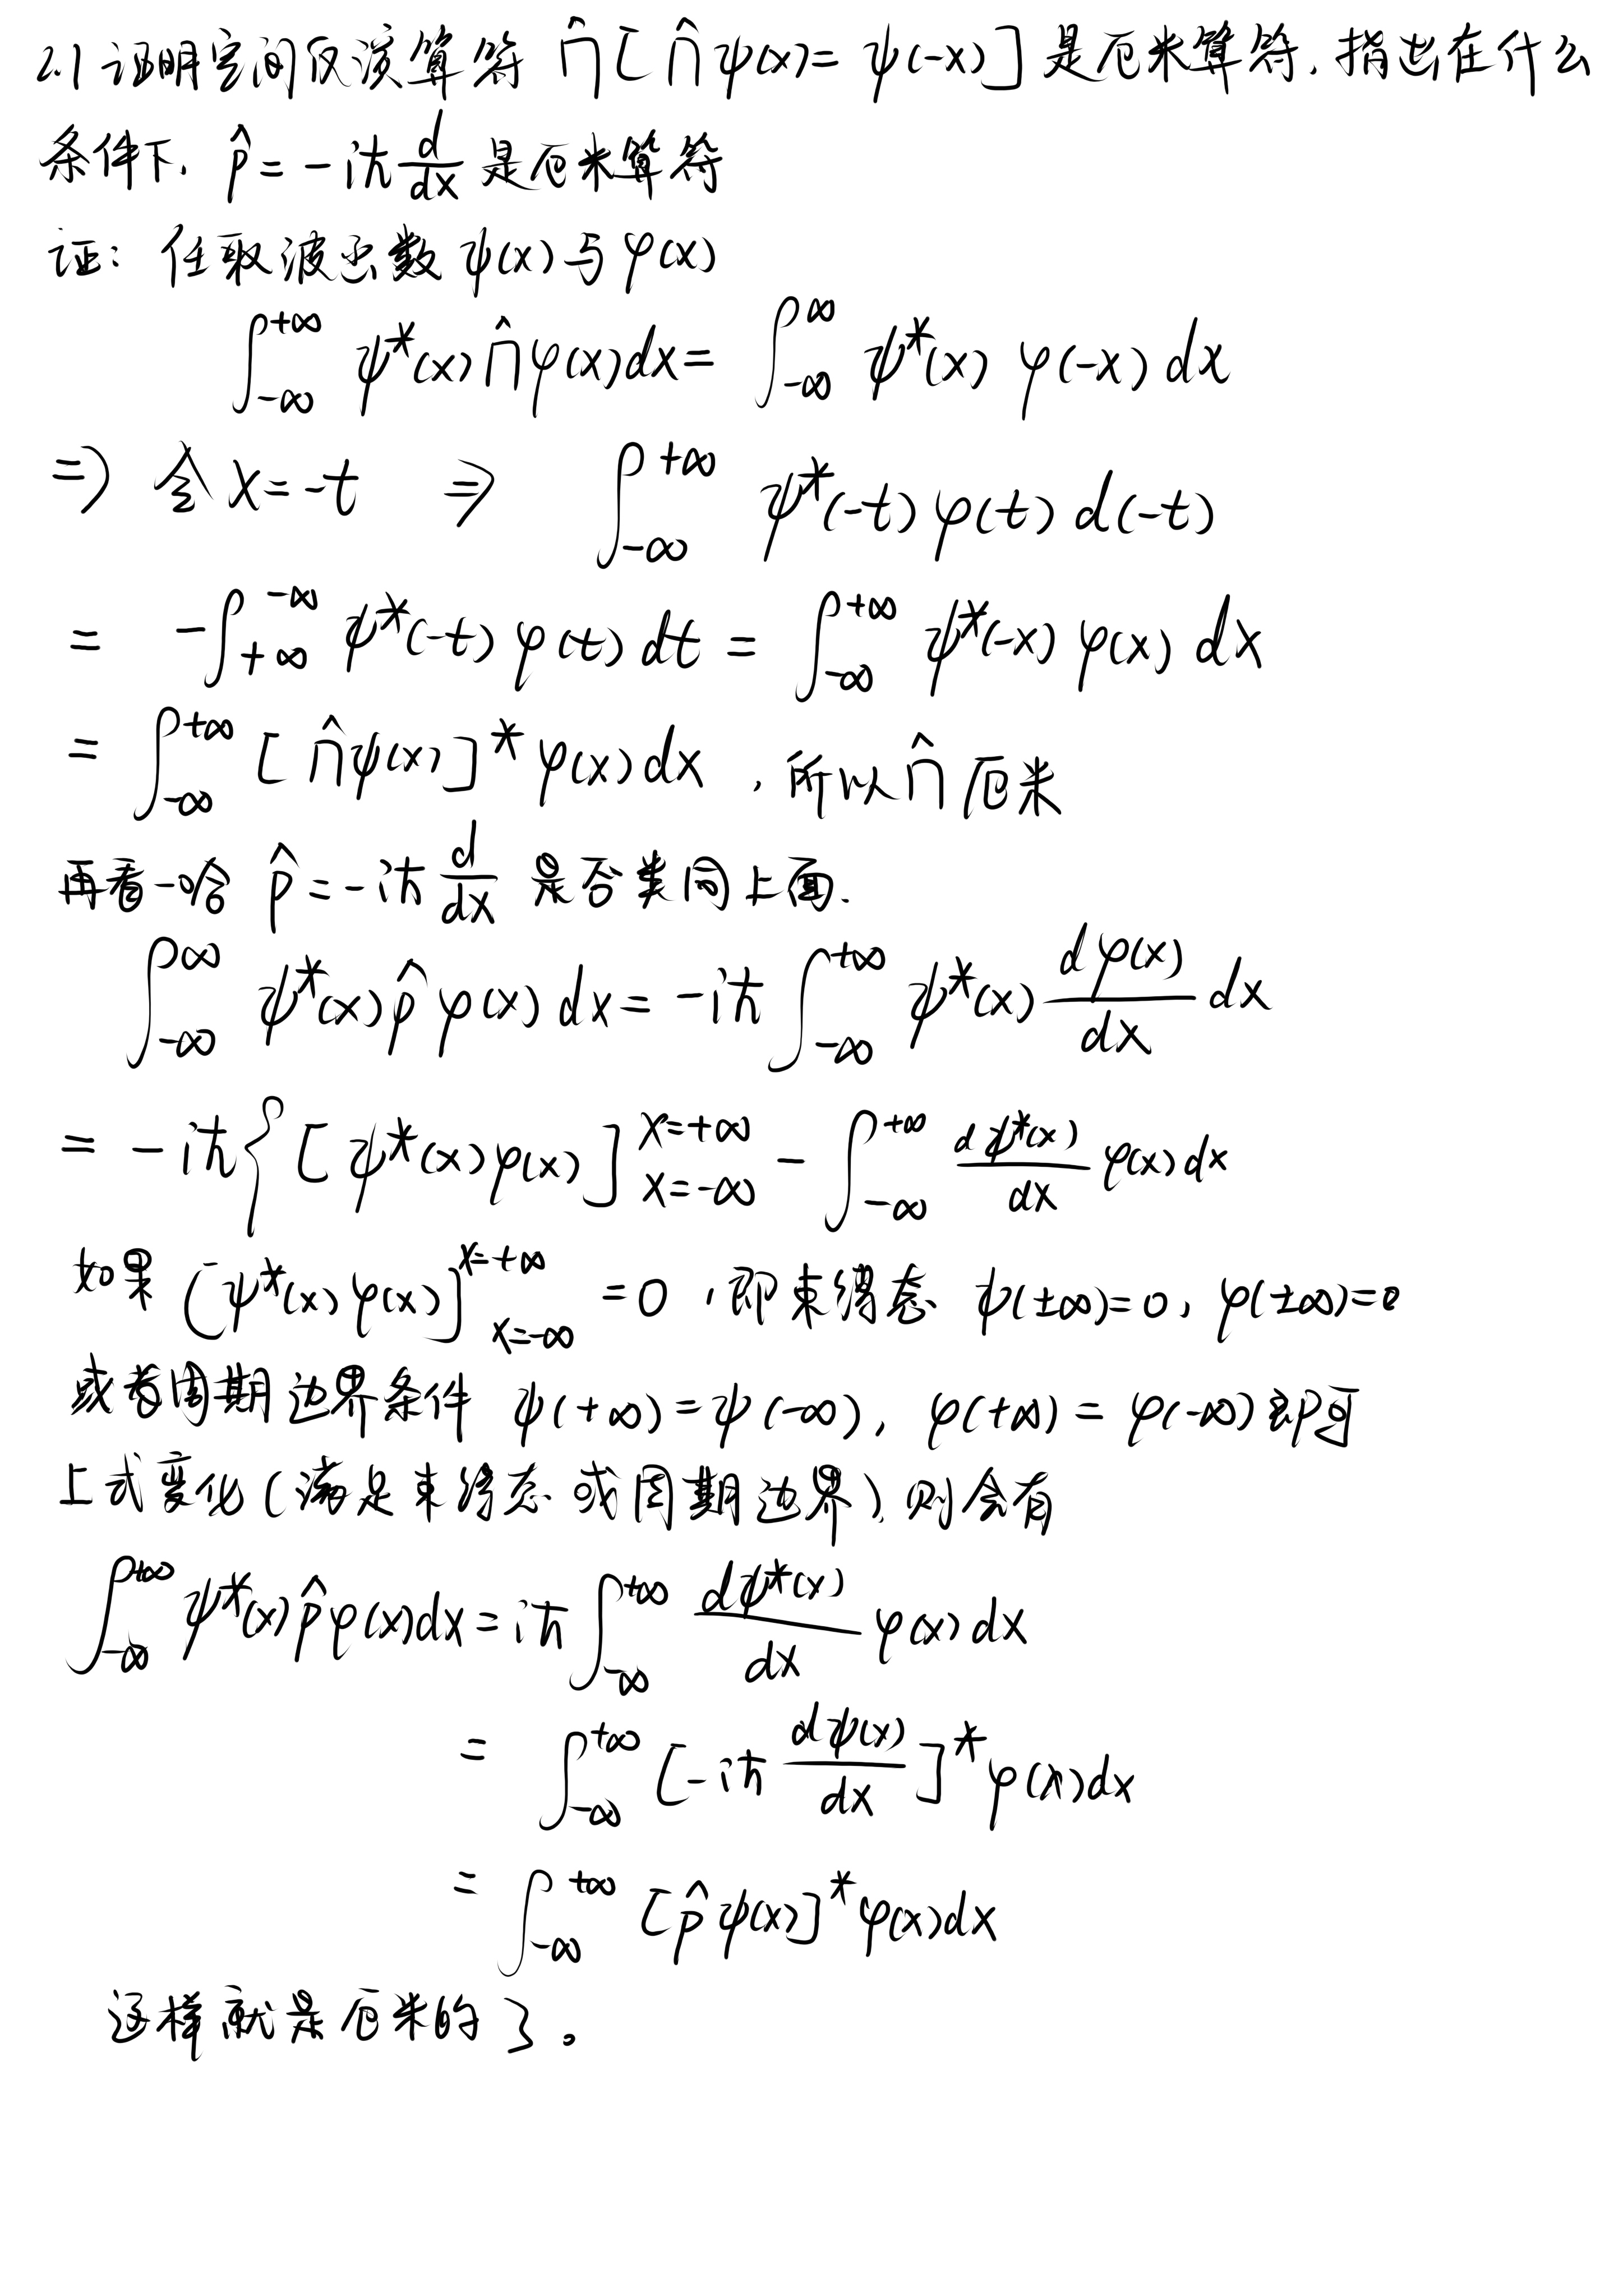 2.1 证明空间反演算符 \hat{\Pi} [ \hat{\Pi} ψ(x) = ψ(-x) ] 是厄米算符. 指出在什么
条件下. \hat{p} = -iħ \frac{d}{dx} 是厄米算符
证: 任取波函数 ψ(x) 与 φ(x)
\int_{-∞}^{+∞} ψ^*(x) \hat{\Pi} φ(x) dx = \int_{-∞}^{∞} ψ^*(x) φ(-x) dx
=> 令 x = -t => \int_{-∞}^{+∞} ψ^*(-t) φ(t) d(-t)
= -\int_{+∞}^{-∞} ψ^*(-t) φ(t) dt = \int_{-∞}^{+∞} ψ^*(-x) φ(x) dx
= \int_{-∞}^{+∞} [ \hat{\Pi} ψ(x) ]^* φ(x) dx , 所以 \hat{\Pi} 厄米
再看一哈 \hat{p} = -iħ \frac{d}{dx} 是否类同上面.
\int_{-∞}^{∞} ψ^*(x) \hat{p} φ(x) dx = -iħ \int_{-∞}^{+∞} ψ^*(x) \frac{dφ(x)}{dx} dx
= -iħ { [ ψ^*(x) φ(x) ]_{x=-∞}^{x=+∞} - \int_{-∞}^{+∞} \frac{dψ^*(x)}{dx} φ(x) dx
如果 ( ψ^*(x) φ(x) ]_{x=-∞}^{x=+∞} = 0 , 即束缚态 ψ(±∞)=0, φ(±∞)=0
或者周期边界条件 ψ(+∞) = ψ(-∞), φ(+∞) = φ(-∞) 即可
上式变化 (满足束缚态或周期边界), 则会有
\int_{-∞}^{+∞} ψ^*(x) \hat{p} φ(x) dx = iħ \int_{-∞}^{+∞} \frac{dψ^*(x)}{dx} φ(x) dx
= \int_{-∞}^{+∞} [ -iħ \frac{dψ(x)}{dx} ]^* φ(x) dx
= \int_{-∞}^{+∞} [ \hat{p} ψ(x) ]^* φ(x) dx
这样就是厄米的了。